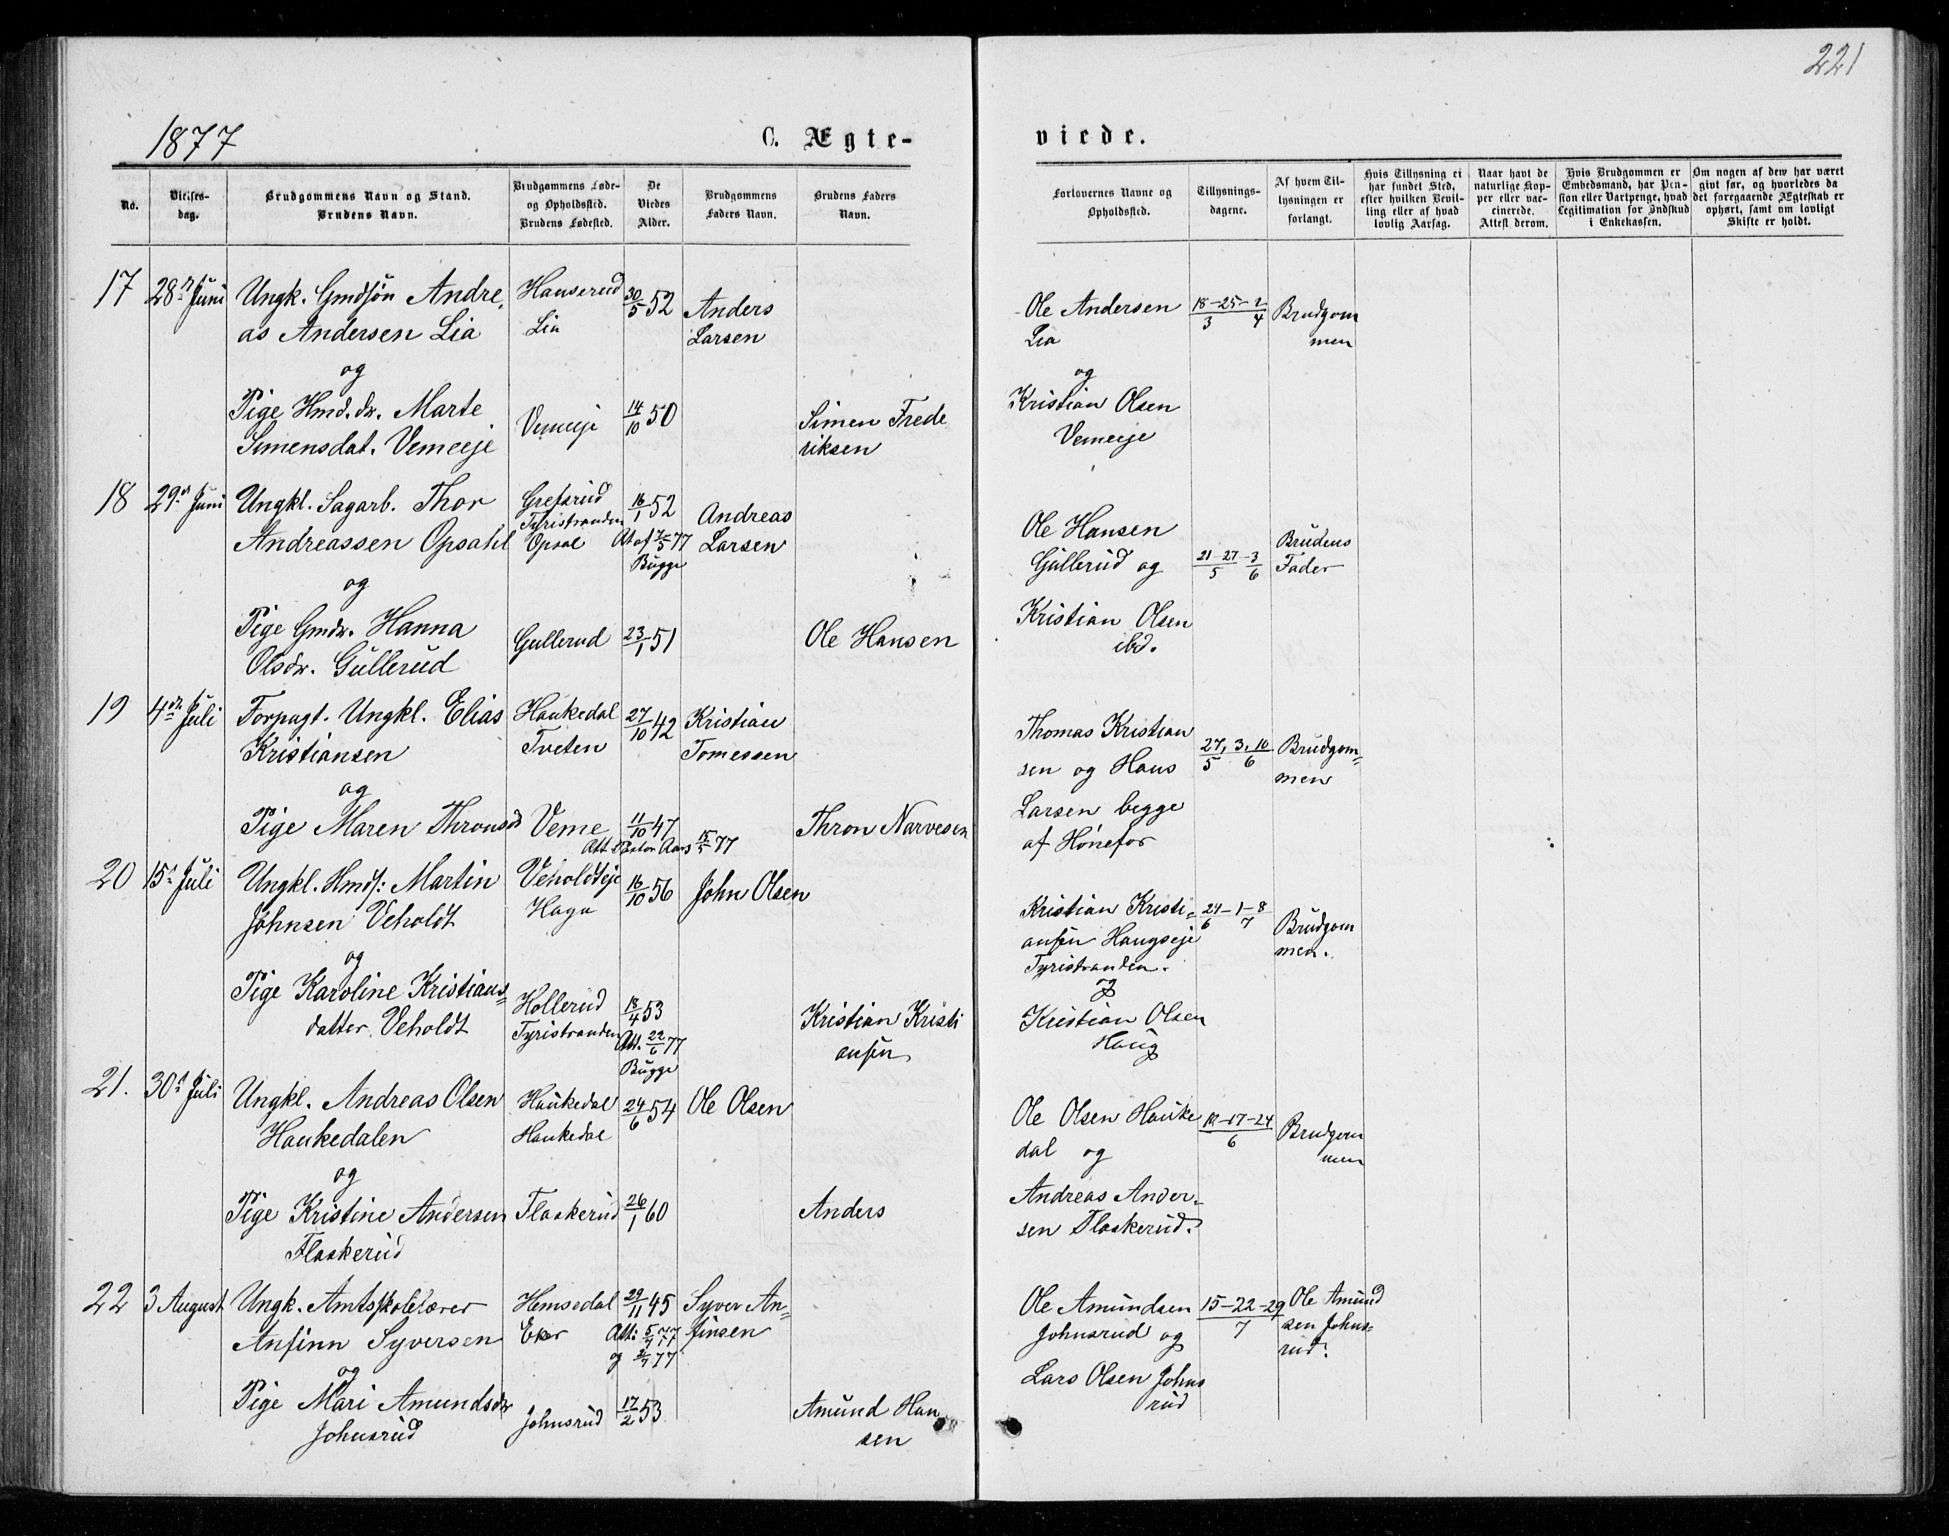 221
1877
C. Ægte-
viede.
No.
Vielses-
dag.
Brudgommens Navn og Stand.
Brudens Navn.
Brudgommens Føde-
og Opholdssted.
Brudens Fødested.
De
Viedes
Alder.
Brudgommens
Faders Navn.
Brudens Faders
Navn.
Forlovernes Navne og
Opholdssted.
Tillysnings-
dagene.
Af hvem Til-
lysningen er
forlangt.
Hvis Tillysning ei
har fundet Sted,
efter hvilken Bevil-
ling eller af hvad
lovlig Aarsag.
Naar havt de
naturlige Kop-
per eller vac-
cinerede.
Attest derom.
Hvis Brudgommen er
Embedsmand, har Pen-
sion eller Vartpenge, hvad
Legitimation for Indskud
i Enkekassen.
Om nogen af dem har været
gift før, og hvorledes da
det foregaaende Ægteskab er
ophørt, samt om lovligt
Skifte er holdt.
17 28de Juni Ungk. Gmdsøn Andre- Hanserud 30/5 52 Anders
as Andersen Lia Lia Larsen
Ole Andersen 18-25-2/3 4 Brudgom
Lia men
og
og
Pige Hmd.dr. Marte Vemeeje 14/10 50 Simen Frede
Simensdat. Vemeeje riksen
Kristian Olsen
Vemeeje
18 29de Juni Ungkl. Sagarb. Thor Grefsrud 16/1 52 Andreas
Andreassen Opsahl Tyristranden Opsal At af 2/5 77 Larsen
Bugge
Ole Hansen Brudens
Gullerud og 21-27-3/5 6 Fader
og
Pige Gmdr. Hanna Gullerud 23/1 51 Ole Hansen
Olsdr. Gullerud
Kristian Olsen
ibd.
19 4de Juli Forpagt. Ungkl. Elias Haukedal 27/10 42 Kristian
Kristiansen Tveten Tomessen
Thomas Kristian 27, 3, 10/5 6 Brudgom=
sen og Hans men
og
Pige Maren Thronsd Veme 11/10 47 Thron Narvesen
Att. Pastor Aars 15/5 77
Larsen begge
af Hønefos
20 15de Juli Ungkl. Hmds: Martin Veholdteje 16/10 56 John Olsen
Johnsen Veholdt Haga
Kristian Kristi= 24-1-8/6 7 Brudgom
ansen Haugseje men.
Tyristranden.
og
og
Pige Karoline Kristians= Hollerud 18/4 53 Kristian Kristi
datter Veholdt Tyristranden Att. 22/6 77 ansen
Bugge
Kristian Olsen
Haug
21. 30te Juli Ungkl. Andreas Olsen Haukedal 24/6 54 Ole Olsen
Haukedalen Haukedal
Ole Olsen Hauke 10-17-24/6 Brudgom
dal og men
og
Pige Kristine Andersen Flaskerud 26/1 60 Anders
Flaskerud
Andreas Ander=
sen Flaskerud.
22 3 August Ungk. Amtsskolelærer Hemsedal 29/11 45 Syver An=
Anfinn Syversen Eker Att: 5/7 77 finsen
og 2/7 77
Ole Amundsen 15-22-29/7 Ole Amund
Johnsrud og sen Johns=
rud.
og
Pige Mari Amundsdr Johnsrud 17/2 53 Amund Han
Johnsrud sen
Lars Olsen Johns
rud